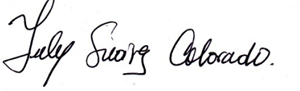 July Suarez Colorado.